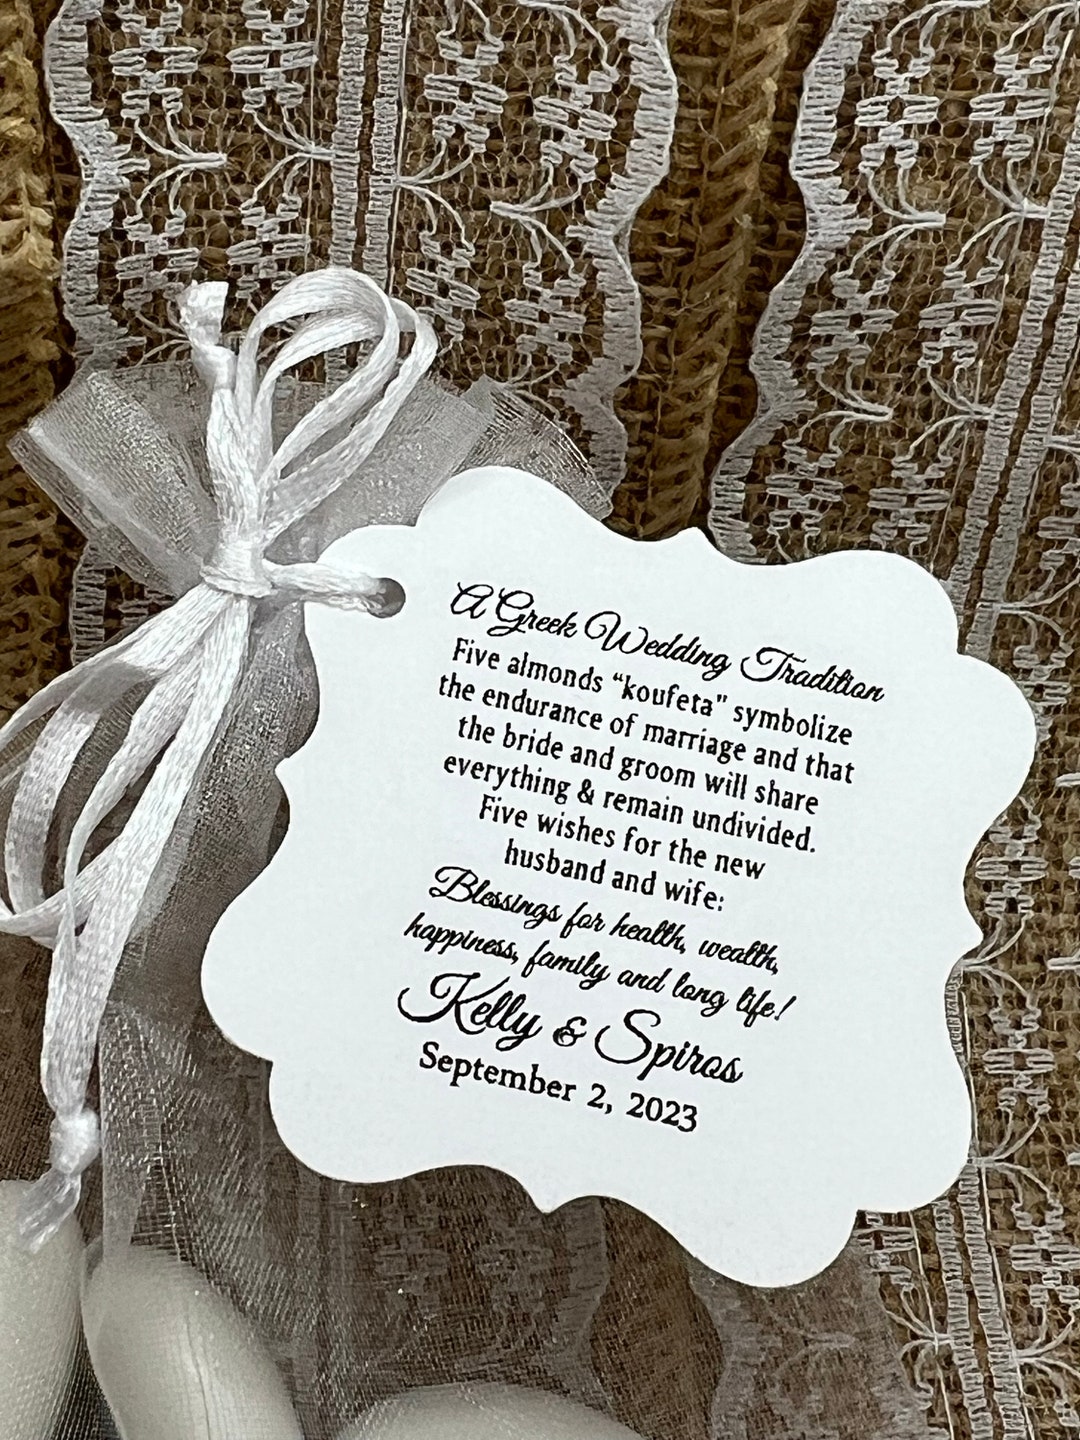 A Greek Wedding Tradition
Five almonds “koufeta" symbolize
the endurance of marriage and that
the bride and groom will share
everything & remain undivided.
Five wishes for the new
husband and wife:
Blessings for health, wealth,
happiness, family and long life!
Kelly & Spiros
September 2, 2023